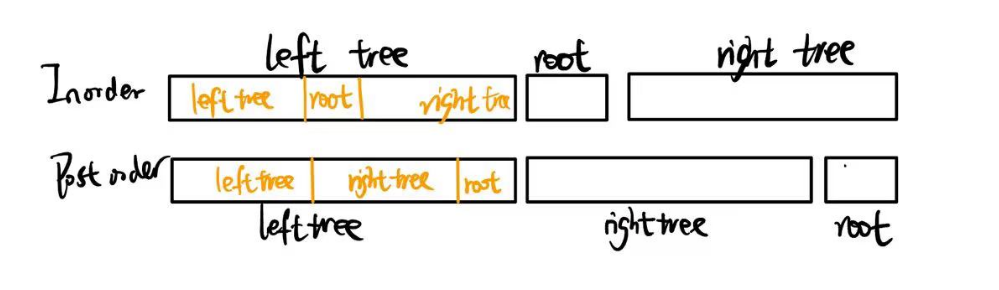 left tree root right tree
Inorder left tree root right tre
Post order left tree right tree root
left tree right tree root